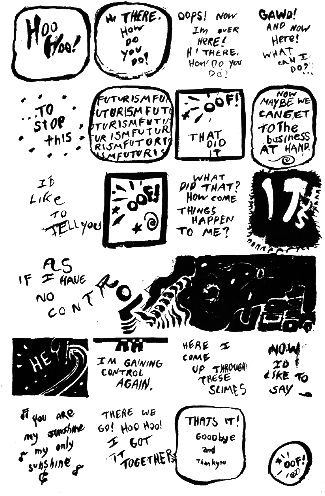 HOO
HOO!
HI THERE.
HOW
DO
YOU
DO!
OOPS! NOW
I'm OVER
HERE!
HI THERE.
HOW DO YOU
DO!
GAWD!
AND NOW
HERE!
WHAT
CAN I
DO?
...TO
STOP
this
FUTURISMFU
FUTURISMFUT
UTURISMFUTU
URISMFUTUR
RISMFUTURI
ISMFUTURIS
OOF!
THAT
DID
IT
NOW
MAYBE WE
CAN GET
TO The
business
AT HAND.
I'D
LIKE
TO
TELL YOU
OOF!
WHAT
DID THAT?
HOW COME
THINGS
HAPPEN
TO ME?
IT'S
AS
IF I HAVE
NO
CONTR
HEY
I'M GAINING
CONTROL
AGAIN.
HERE I
COME
UP THROUGH
THESE
SLIMES
NOW
I'D
LIKE TO
SAY
you are
my sunshine
my only
sunshine
THERE WE
GO! HOO HOO!
I GOT
IT TOGETHER
THATS IT!
Goodbye
and
Thankyou
OOF!